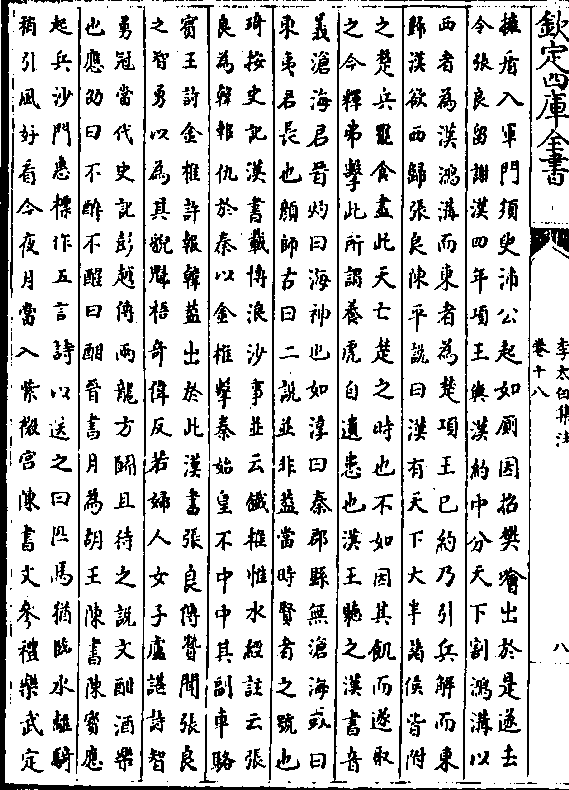 欽定四庫全書
李太白集注
卷十八
八
擁盾入軍門須臾沛公起如厠因招樊噲出於是遂去
令張良留謝漢四年項王與漢約中分天下割鴻溝以
西者為漢鴻溝而東者為楚項王已約乃引兵解而東
歸漢欲西歸張良陳平說曰漢有天下大半諸侯皆附
之楚兵罷食盡此天亡楚之時也不如因其飢而遂取
之今釋弗擊此所謂養虎自遺患也漢王聽之漢書音
義滄海君晉灼曰海神也如淳曰秦郡縣無滄海或曰
東夷君長也顔師古曰二說並非蓋當時賢者之號也
琦按史記漢書載博浪沙事並云鐵椎惟水經註云張
良為韓報仇於秦以金椎擊秦始皇不中中其副車駱
賓王詩金椎許報韓蓋出於此漢書張良傳贊聞張良
之智勇以為其貌魁梧奇偉反若婦人女子盧諶詩智
勇冠當代史記彭越傳兩龍方鬬且待之說文酣酒樂
也應劭曰不醉不醒曰酣晉書月為胡王陳書陳寶應
起兵沙門惠標作五言詩以送之曰匹馬猶臨水離騎
稍引風好看今夜月當入紫微宮陳書文參禮樂武定